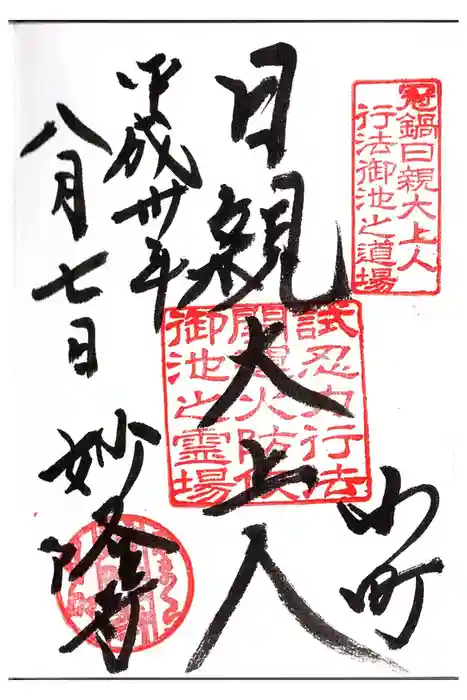 冠鍋日親大上人
行法御池之道場
小町
試忍力行法
開運火防
御池之霊場
日親大上人
平成卅年
八月七日
妙隆寺